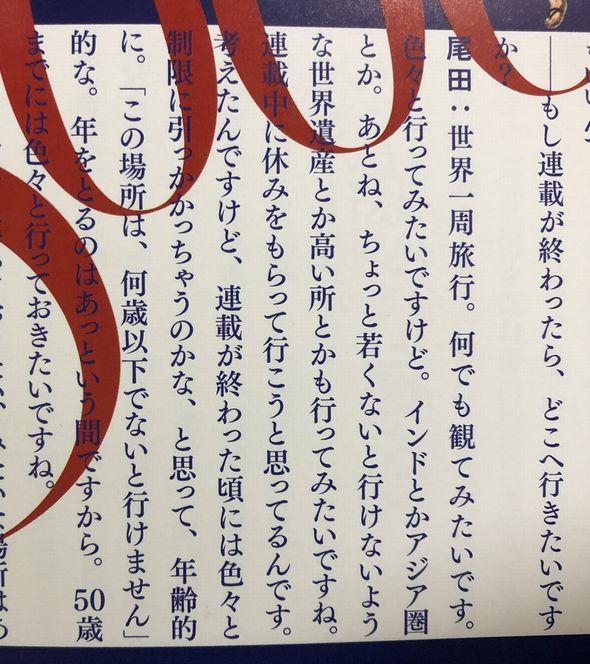 ――もし連載が終わったら、どこへ行きたいです
か？
尾田：世界一周旅行。何でも観てみたいです。
色々と行ってみたいですけど。インドとかアジア圏
とか。あとね、ちょっと若くないと行けないよう
な世界遺産とか高い所とかも行ってみたいですね。
連載中に休みをもらって行こうと思ってるんです。
考えたんですけど、連載が終わった頃には色々と
制限に引っかかっちゃうのかな、と思って、年齢的
に。「この場所は、何歳以下でないと行けません」
的な。年をとるのはあっという間ですから。50歳
までには色々と行っておきたいですね。